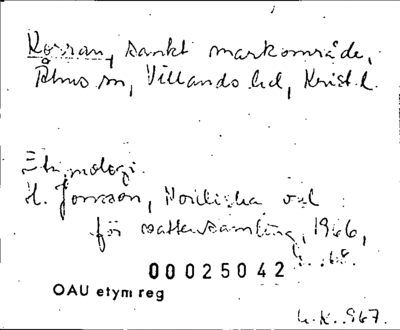 Korran, sankt markområde,
Åhus sn, Villands hd, Krist. l.
Etymologi.
H. Jonsson, Nordiska ord
för vattensamling, 1966,
s. 68.
00025042
OAU etym reg
H.K. 967.